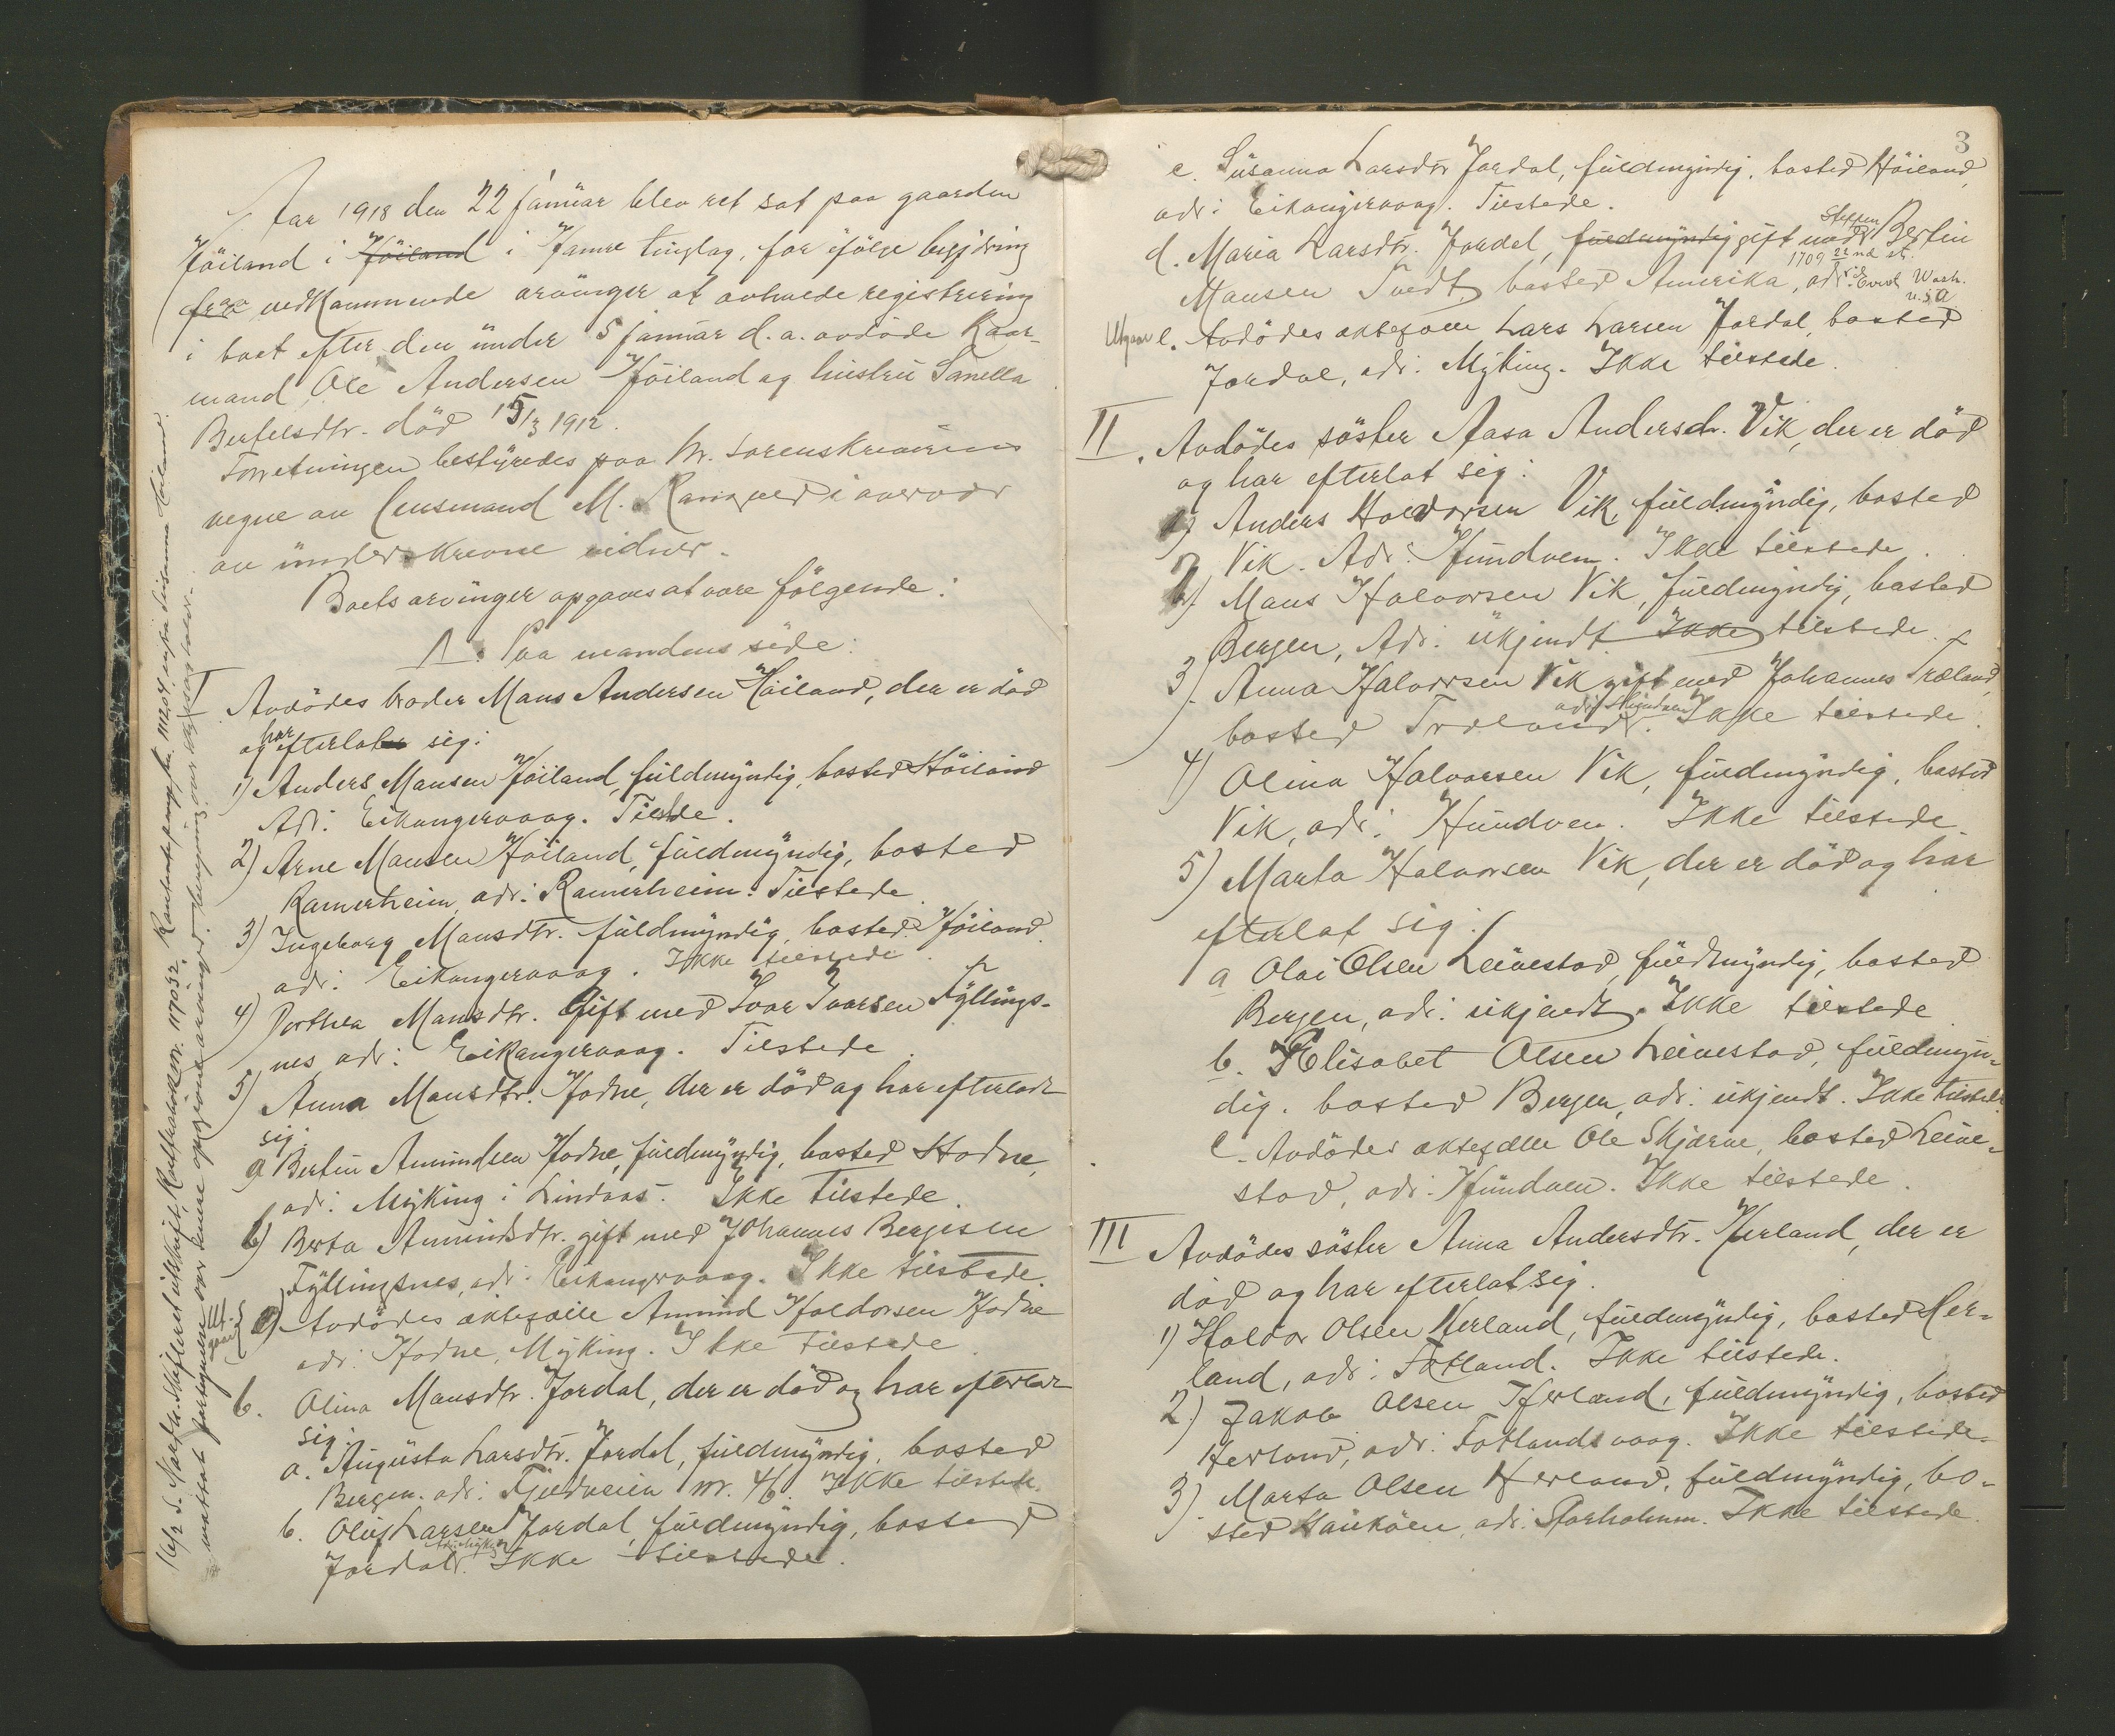 Aar 1918 den 22 januar blev ret sat paa gaarden
Höiland i Höiland i Hamre tinglag, for ifölge begjæring
fra vedkommende arvinger at avholde registrering
i boet efter den under 5 januar d.a. avdöde Kaar-
mand Ole Andersen Höiland og hustru Sanella
Bertelsdtr. död 15/3 1912.
Forretningen bestyredes paa hr. sorenskriverens
vegne av lensmand M. i overvær
av underskrevne vidner.
Boets arvinger opgaves at være fölgende:
A. Paa mandens side:
I
Avdödes broder Mans Andersen Höiland, der er död
og har efterlat sig:
1) Anders Mansen Höiland, fuldmyndig, bosted Höiland
Adr: Eikangervaag. Tilstede.
2) Arne Mansen Höiland, fuldmyndig, bosted
Ramerheim, adr: Ramerheim. Tilstede.
3) Ingeborg Mansdtr. fuldmyndig, bosted Höiland
adr: Eikangervaag. Ikke tilstede.
4) Dorthea Mansdtr. Gift med Ivar Ivarsen Fyllings-
nes adr: Eikangervaag. Tilstede.
5) Anna Mansdtr. Hodne, der er död og har efterladt
sig:
a) Bertin Amundsen Hodne, fuldmyndig, bosted Hodne,
adr: Myking i Lindaas. Ikke tilstede.
b) Berta Amundsdtr. gift med Johannes Bergesen
Fyllingsnes, adr: Eikangervaag. Ikke tilstede.
Utgaar
c) Avdödes ektefælle Amund Haldorsen Hodne
adr: Hodne, Myking. Ikke tilstede
6. Olina Mansdtr. Jordal, der er död og har efterlat
sig:
a. Augusta Larsdtr. Jordal, fuldmyndig, bosted
Bergen. adr: Fjeldveien nr. 46. Ikke tilstede.
b. Oluf Larsen Jordal, fuldmyndig, bosted
Adr. Myking
Jordal. Ikke tilstede.
3
c. Susanna Larsdtr Jordal, fuldmyndig, bosted Höiland,
adr: Eikangervaag. Tilstede.
d. Maria Larsdtr. Jordal, fuldmyndig gift med Steffen Bertin
1709 22nd st.
Mansen Tvedt, bosted Amerika, adr: Wash.
U.S.A
Utgaar e. Avdödes ektefælle Lars Larsen Jordal, bosted
Jordal, adr: Myking. Ikke tilstede.
II. Avdödes söster Aasa Andersdtr. Vik, der er död
og har efterlat sig:
1) Anders Halvorsen Vik, fuldmyndig, bosted
Vik. Adr: Hundven. Ikke tilstede.
2) Mans Halvorsen Vik, fuldmyndig, bosted
Bergen, Adr: ukjendt. Ikke tilstede.
3) Anna Halvorsen Vik gift med Johannes Træland,
adr: Hundven
bosted Træland. Ikke tilstede.
4) Olina Halvorsen Vik, fuldmyndig, bosted
Vik, adr: Hundven. Ikke tilstede.
5) Marta Halvorsen Vik, der er död og har
efterlat sig:
a Olai Olsen Leivestad, fuldmyndig, bosted
Bergen, adr: ukjendt. Ikke tilstede
b. Elisabet Olsen Leivestad, fuldmyn-
dig. bosted Bergen, adr: ukjendt. Ikke tilstede.
c. Avdödes ektefælle Ole Skjærve, bosted Leive-
stad, adr: Hundven. Ikke tilstede.
III Avdödes söster Anna Andersdtr. Herland, der er
död og har efterlat sig.
1) Haldor Olsen Herland, fuldmyndig, bosted Her-
land, adr: Fotland. Ikke tilstede.
2) Jakob Olsen Herland, fuldmyndig, bosted
Herland, adr: Fotlandsvaag. Ikke tilstede.
3) Marta Olsen Herland, fuldmyndig, bo-
sted Haukaaen, adr: Ikke tilstede.